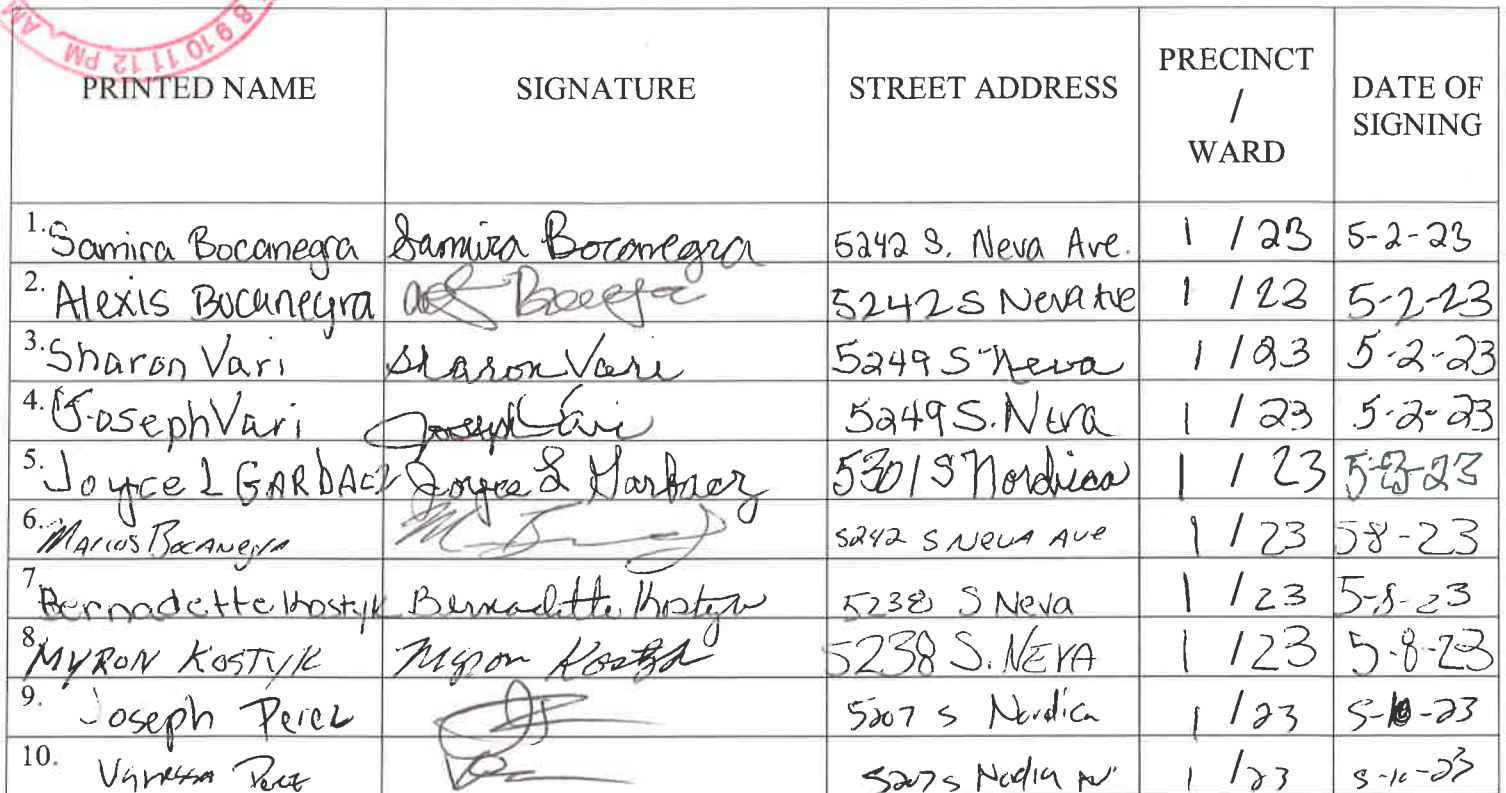 8 9 10 11 12 PM AM
PRINTED NAME SIGNATURE STREET ADDRESS PRECINCT / WARD DATE OF SIGNING
1. Samira Bocanegra Samira Bocanegra 5242 S. Neva Ave. 1 / 23 5-2-23
2. Alexis Bocanegra 5242 S Neva Ave 1 / 23 5-2-23
3. Sharon Vari Sharon Vari 5249 S Neva 1 / 23 5-2-23
4. Joseph Vari Joseph Vari 5249 S. Neva 1 / 23 5-2-23
5. Joyce L GARBACZ Joyce L Garbacz 5301 S Nordica 1 / 23 5-3-23
6. Marcos Bocanegra 5242 S Neva Ave 1 / 23 5-8-23
7. Bernadette Kostyk Bernadette Kostyk 5238 S Neva 1 / 23 5-8-23
8. MYRON KOSTYK Myron Kostyk 5238 S. NEVA 1 / 23 5-8-23
9. Joseph Perez 5207 S Nordica 1 / 23 5-10-23
10. Vanessa Perez 5207 S 1 / 23 5-10-23